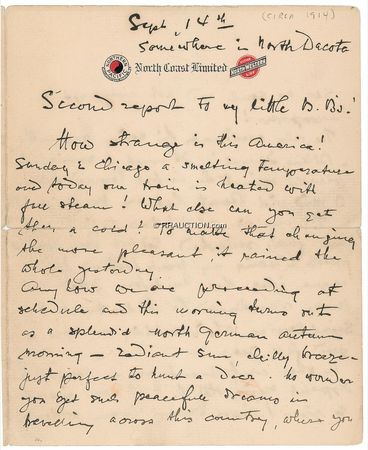 (CIRCA 1914)
Sept. 14th
Somewhere in North Dacota
NORTHERN PACIFIC
North Coast Limited
NORTH WESTERN LINE
Second report to my little B. B.!
How strange is this America!
Sunday & Chicago a smelting temperature
and today our train is heated with
full steam! What else can you get
then, a cold! To make that changing
the more pleasant it rained the
whole yesterday.
RRAUCTION.COM
Anyhow we are proceeding at
schedule and this morning turns out
as a splendid north german autumn
morning — radiant sun, chilly breeze -
just perfect to hunt a deer. No wonder
you get such peaceful dreams in
travelling across this country, where you